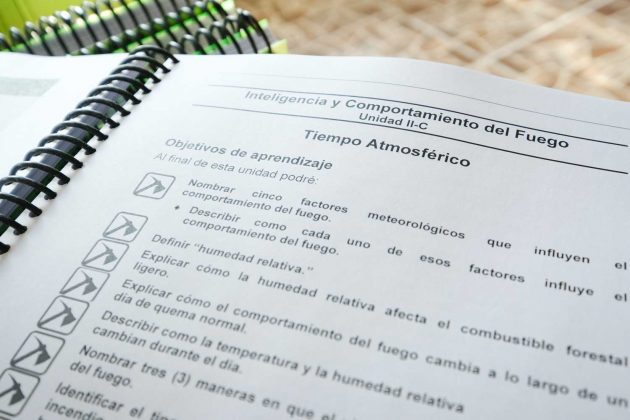 Inteligencia y Comportamiento del Fuego
Unidad II-C
Tiempo Atmosférico
Objetivos de aprendizaje
Al final de esta unidad podré:
Nombrar cinco factores meteorológicos que influyen el
comportamiento del fuego.
• Describir como cada uno de esos factores influye el
comportamiento del fuego.
Definir "humedad relativa."
Explicar cómo la humedad relativa afecta el combustible forestal
ligero.
Explicar cómo el comportamiento del fuego cambia a lo largo de un
día de quema normal.
Describir como la temperatura y la humedad relativa
cambian durante el día.
Nombrar tres (3) maneras en que el
del fuego.
Identificar el